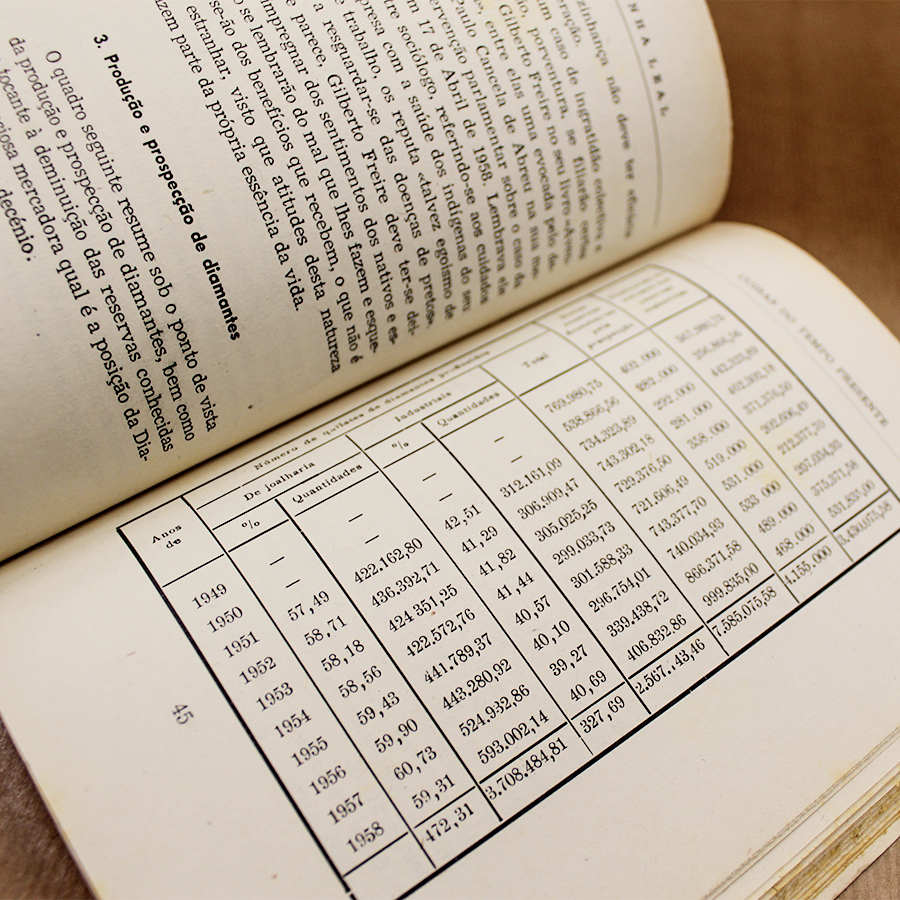 NHA LEAL
zinhança não deve ter
oração.
um caso de ingratidão colectiva e
io, porventura, se filiarão certos
Gilberto Freire no seu livro
entre elas uma evocada pelo de-
Paulo Cancela de Abreu na sua
ervenção parlamentar sobre o caso da
m 17 de Abril de 1958. Lembrava ele
tre sociólogo, referindo-se aos cuidados
presa com a saúde dos indígenas do seu
e trabalho, os reputa «talvez egoísmo de
a resguardar-se das doenças de pretos».
e parece, Gilberto Freire deve ter-se dei-
impregnar dos sentimentos dos nativos e es-
o se lembrarão do mal que lhes fazem e esque-
se-ão dos benefícios que recebem, o que não é
estranhar, visto que atitudes desta natureza
zem parte da própria essência da vida.
3. Produção e prospecção de diamantes
O quadro seguinte resume sob o ponto de vista
da produção e prospecção de diamantes, bem como
tocante à deminuição das reservas conhecidas
ciosa mercadora qual é a posição da Dia-
decénio.
DO TEMPO PRESENTE
Anos de Número de quilates de diamantes produzidos
De joalharia Industriais Total
% Quantidades % Quantidades
1949 — — — — 769.980,75 402.000 367.980,75
1950 — — — — 538.866,56 282.000 256.866,56
1951 57,49 422.162,80 42,51 312.161,09 734.323,89 292.000 442.323,89
1952 58,71 436.392,71 41,29 306.909,47 743.302,18 281.000 462.302,18
1953 58,18 424 351,25 41,82 305.025,25 729.376,50 358.000 371.376,50
1954 58,56 422.572,76 41,44 299.033,73 721.606,49 519.000 202.606,49
1955 59,43 441.789,37 40,57 301.588,33 743.377,70 531.000 212.377,70
1956 59,90 443.280,92 40,10 296.754,01 740.034,93 533 000 207.034,93
1957 60,73 524.932,86 39,27 339.438,72 866.371,58 489.000 375.371,58
1958 59,31 593.002,14 40,69 406.832,86 999.835,00 468.000 531.835,00
472,31 3.708.484,81 327,69 2.567..43,46 7.585.075,58 4.155.000 3.430.075,58
45